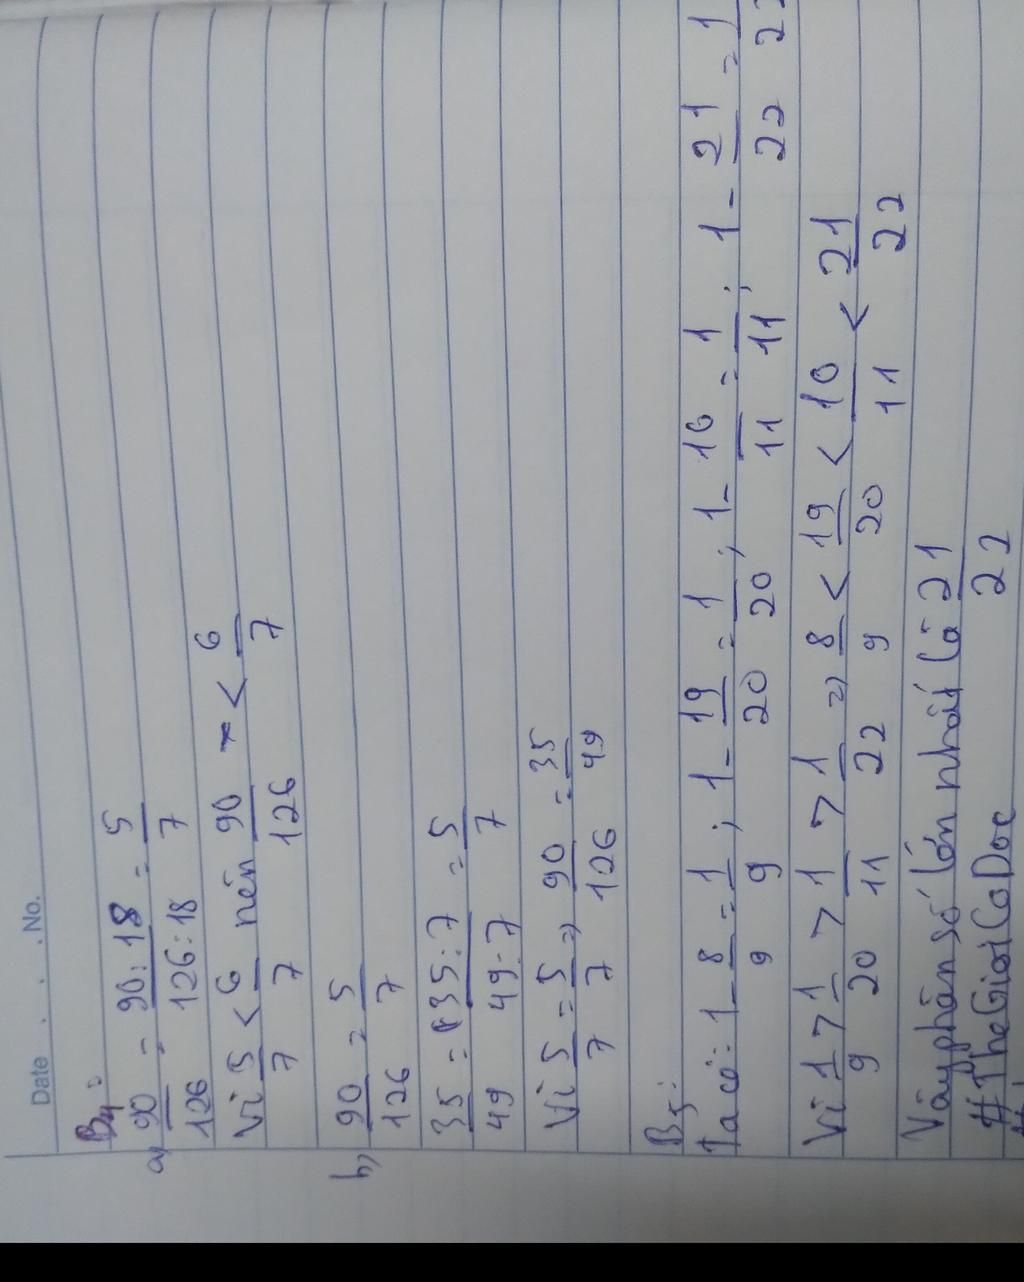 Date . . . No.
B4:
a) 90/126 = 90:18/126:18 = 5/7
Vì 5/7 < 6/7 nên 90/126 < 6/7
b) 90/126 = 5/7
35/49 = 35:7/49:7 = 5/7
Vì 5/7 = 5/7 => 90/126 = 35/49
B5:
Ta có: 1 - 8/9 = 1/9 ; 1 - 19/20 = 1/20 ; 1 - 10/11 = 1/11 ; 1 - 21/22 = 1/22
Vì 1/9 > 1/20 > 1/11 > 1/22 => 8/9 < 19/20 < 10/11 < 21/22
Vậy phân số lớn nhất là 21/22
#TheGioiCoDoc